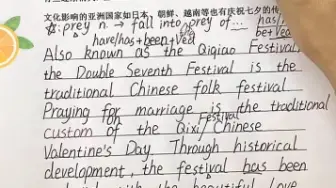 文化影响的亚洲国家如日本、朝鲜、越南等也有庆祝七夕的传
prey n. → fall into prey of... has/
have/has+been+Ved be+Ved
Also known as the Qiqiao Festival,
the Double Seventh Festival is the
traditional Chinese folk festival
Praying for marriage is the traditional
Festival
custom of the Qixi/ Chinese
Valentine's Day Through historical
development, the festival has been
the beautiful love